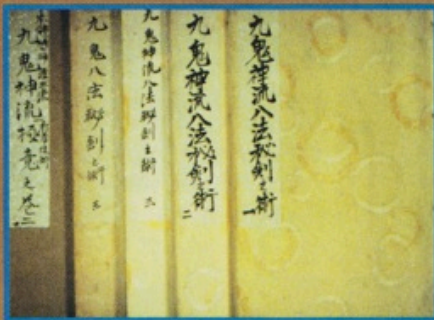 九鬼神流八法秘剣之術
一
九鬼神流八法秘剣之術
二
九鬼神流八法秘剣之術
三
九鬼八法秘剣之術
五
九鬼神流極意之巻二